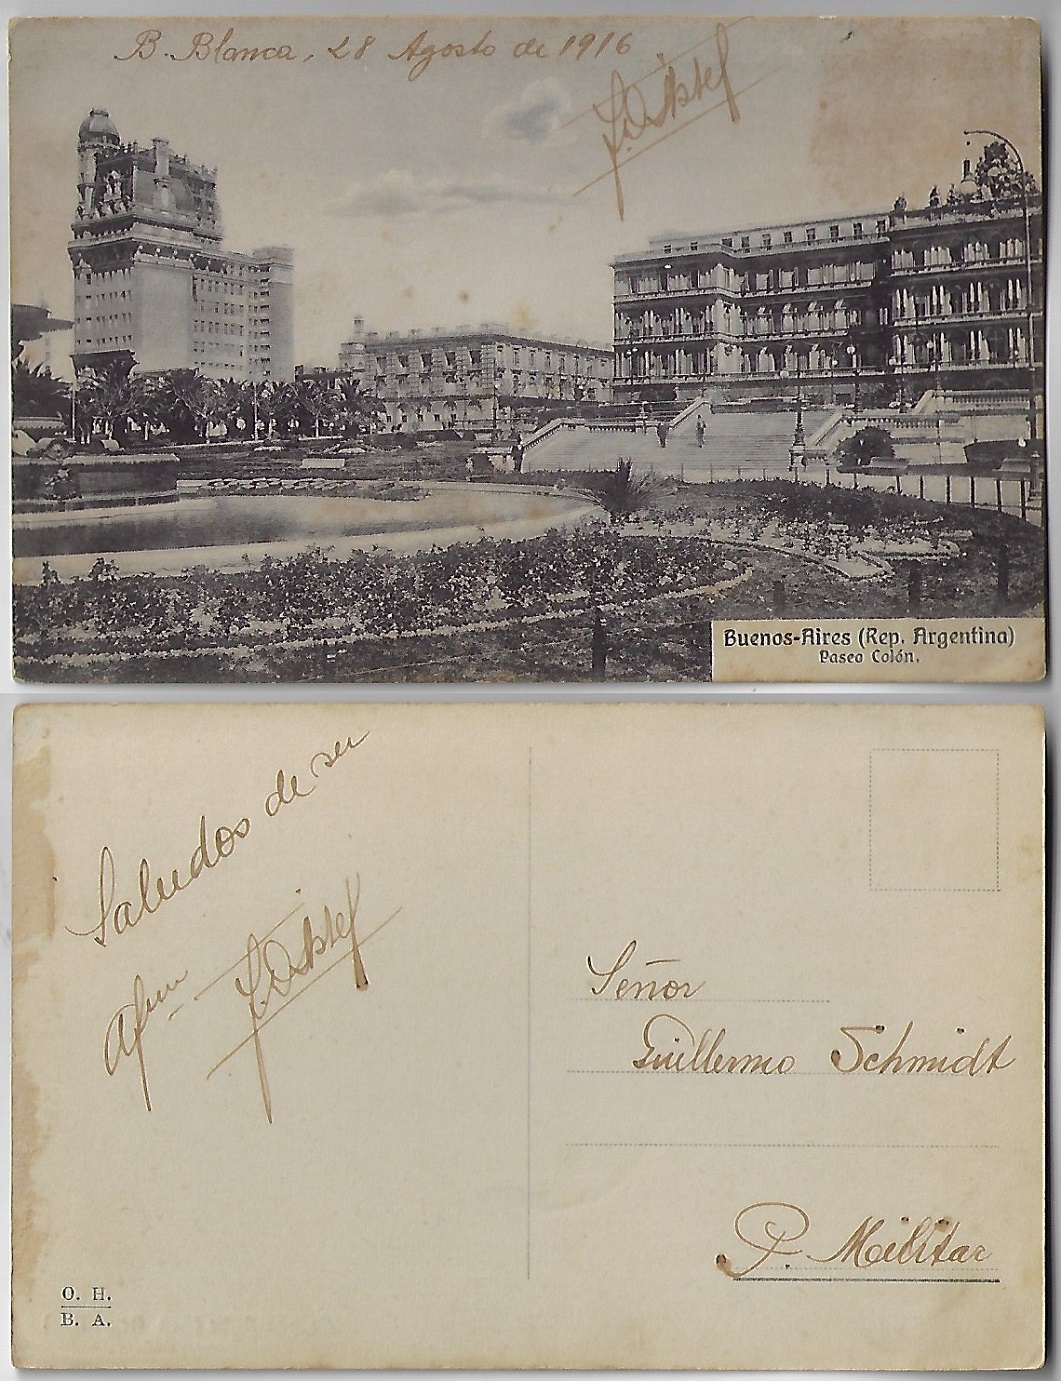 B. Blanca, 28 Agosto de 1916
Buenos-Aires (Rep. Argentina)
Paseo Colón.
Saludos de su
Afmo
Señor
Guillermo Schmidt
P. Militar
O. H.
B. A.